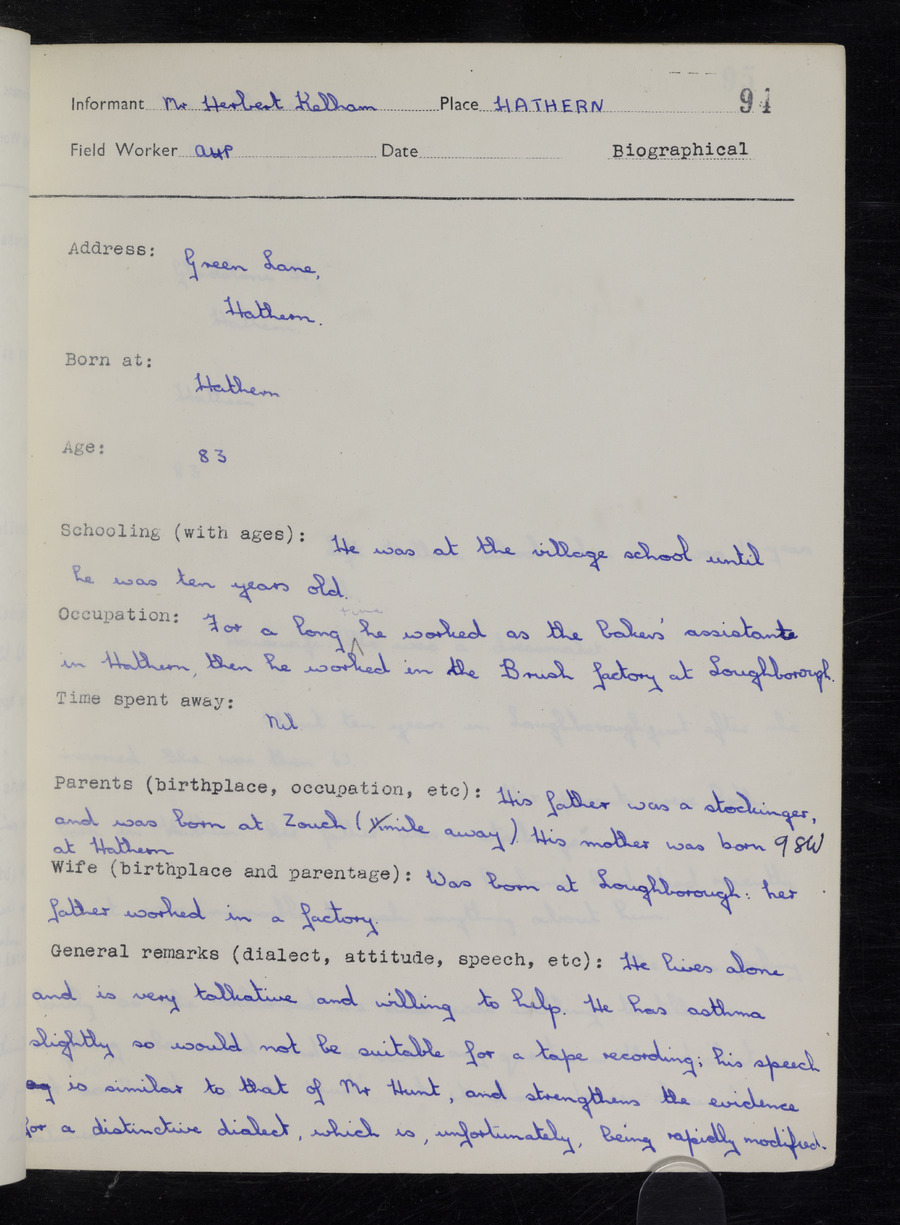 Informant Mr Herbert Kelham Place HATHERN 94
Field Worker AHP Date Biographical
Address: Green Lane,
Hathern.
Born at:
Hathern
Age: 83
Schooling (with ages): He was at the village school until
he was ten years old.
time
Occupation: For a long he worked as the bakers' assistante
in Hathern, then he worked in the Brush factory at Loughborough.
Time spent away:
Nil
Parents (birthplace, occupation, etc): His father was a stockinger,
and was born at Zouch (½ mile away). His mother was born 98W
at Hathern
Wife (birthplace and parentage): Was born at Loughborough: her
father worked in a factory.
General remarks (dialect, attitude, speech, etc): He lives alone
and is very talkative and willing to help. He has asthma
slightly so would not be suitable for a tape recording; his speech
is similar to that of Mr Hunt, and strengthens the evidence
for a distinctive dialect, which is, unfortunately, being rapidly modified.